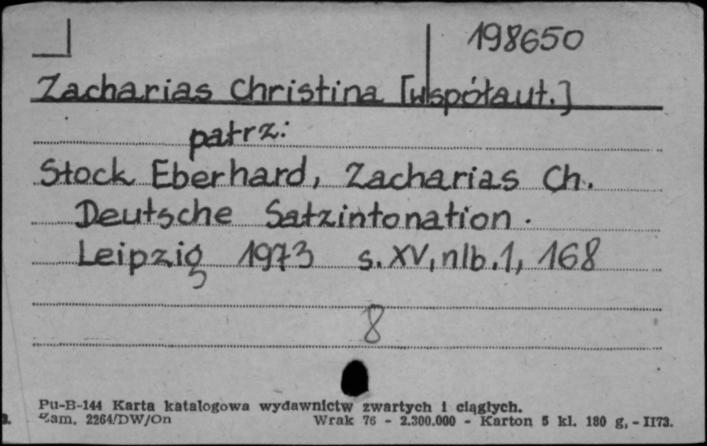 198650
Zacharias Christina [współaut.]
patrz:
Stock Eberhard, Zacharias Ch.
Deutsche Satzintonation.
Leipzig 1973 s. XV, nlb. 1, 168
8
Pu-B-144 Karta katalogowa wydawnictw zwartych i ciągłych.
Zam. 2264/DW/On Wrak 76 - 2.300.000 - Karton 5 kl. 180 g, - II73.